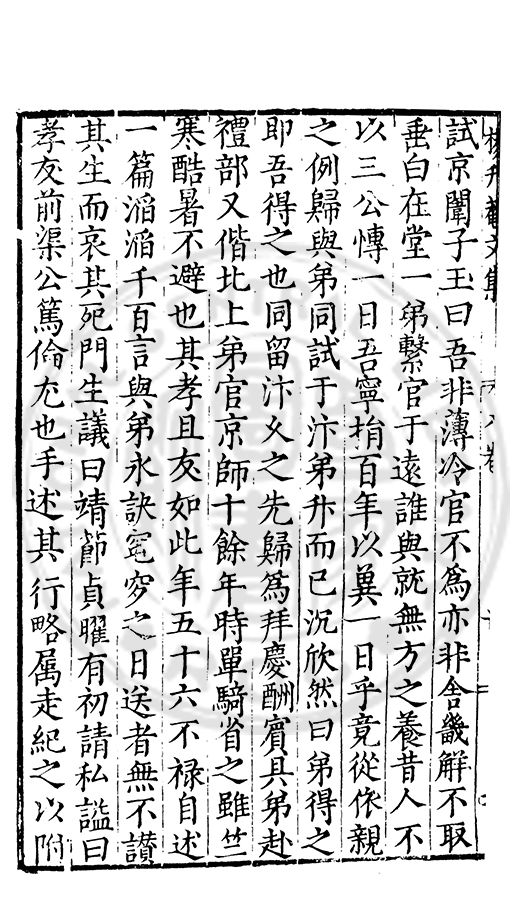 試京闈子玉曰吾非薄冷官不爲亦非舍畿解不取
垂白在堂一弟繫官于遠誰與就無方之養昔人不
以三公愽一日吾寧捐百年以冀一日乎竟從依親
之例歸與弟同試于汴弟升而已沉欣然曰弟得之
即吾得之也同留汴久之先歸爲拜慶酬賓具弟赴
禮部又偕北上弟官京師十餘年時單騎省之雖竺
寒酷暑不避也其孝且友如此年五十六不禄自述
一篇滔滔千百言與弟永訣窀穸之日送者無不讃
其生而哀其死門生議曰靖節貞曜有初請私謚曰
孝友前渠公篤倫尤也手述其行略属走紀之以附